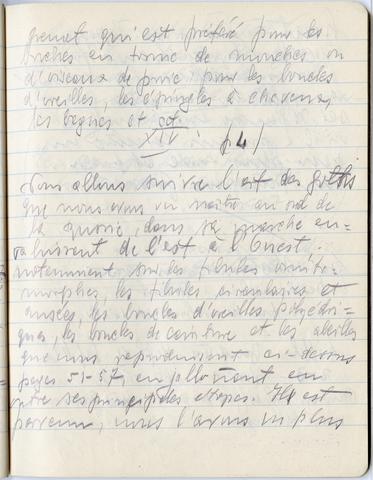 grenat qui est préféré pour les
broches en forme de mouches ou
d'oiseaux de proie pour les boucles
d'oreilles, les épingles à cheveux,
les bagues et
XIV p4)
Nous allons suivre l'art des goths
que nous avons vu naître au sud de
la Russie, dans sa marche en=
vahissant de l'est à l'Ouest.
notamment sur les fibules ornitho=
morphes, les fibules circulaires et
ansées, les boucles d'oreilles polyédri=
ques, les boucles de ceinture et les abeilles
que nous reproduisons ci-dessus
pages 51-57, en jalonnant en
outre ses principales étapes. Il est
parvenu, nous l'avons vu plus